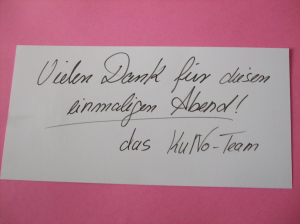 Vielen Dank für diesen
einmaligen Abend!
das KuNo-Team